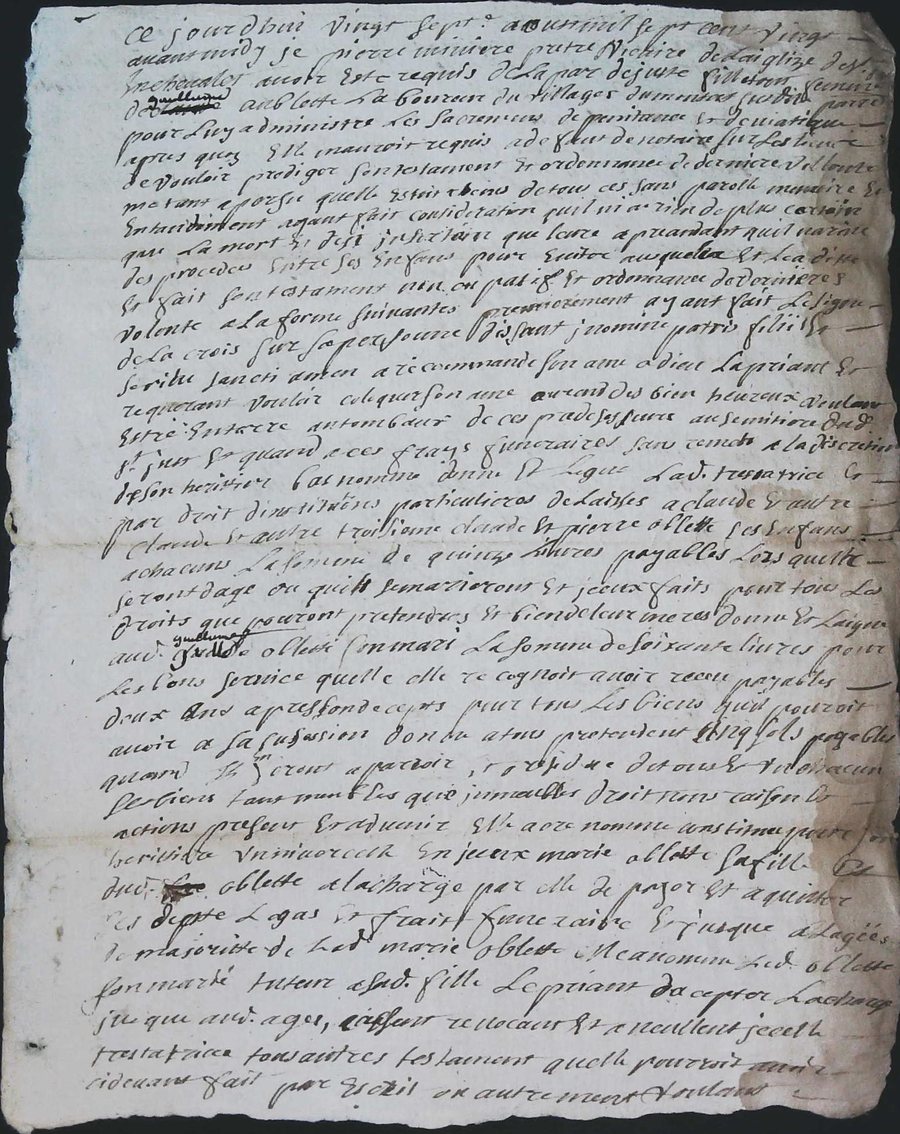 ce jourdhui vingt septe aoust mil sept cent vingt
avant midy je pierre miniere pretre vicaire de Laiglize de
avoir este requis de la par de juste filleton femme
de guilliaume oblette La boureur du villages dumenses
pour Luy administre Les Sacremens de penitance Et de viatique
apres quoy Elle mauroit requis a defaut de notaire sur Les lieux
de vouloir rediger son testament Et ordonnance de derniere vollonte
me tant a persu quelle Estoit dens de tous ces sans parolle memoire Et
Entandement ayant fait consideration quil ni a rien de plus certain
que La mort Et de si insertain que leure a preandant quil narive
des procedes Entre ses Enfans pour Eviter ausquelx Et Lad ditte
Et fait son testament nen cu patif Et ordonnance de dernieres
volonte a La forme suivantes premierement ayant fait Le signe
de La crois sur sa personne dissant jn nomine patris filii Et
spiritu sancti amen a recommande son ame a dieu Le priant Et
requerant vouloir coloquer son ame au rand des bien heureux voulant
Estre Enterre au tombaux de ces predesesseurs au semitiere dud.
st. just Et quand a ces frays funeraires san remet a la discretion
de son heritier bas nomme donne Et Legue Lad. testatrice Et
par droit dinstituions particulieres delaisse a claude Et autre
claude Et autre troisieme claude Et pierre oblette ses Enfans
a chacuns La somme de quinze Livres payables Lors quelle
seront dage ou quils se marieront Et jceux faits pour tous Les
droits que pourront pretendres Et bien de leur meres donne Et Laigue
aud. guilliaume oblette son mari La somme de soixante livres pour
Les bons service quelle elle recognoit avoir receu payables
deux Ans apres son decepts pour tous Les biens quil pouroit
avoir a sa susession donne a tous pretendent sinq sols payables
quand Il seront aparoir, Et residue de tous Et un chacun
ses biens tant meubles que jmmeubles droit nons raison Et
actions present Et advenir Elle a cree nomme constitue pour son
heritiere vnniverselle En jceux marie oblette sa fille Et
dud. oblette a la charge par elle de payer Et aquiter
ses depte Legas Et frait funeraire Et jusque a Lagées
de majoritte de Lad. marie oblette Elle a nomme Led. oblette
son marté tuteur a sad. fille Le priant dacepter La charge
jusque aud. ages, cassent revocant Et aneullent jcelle
testatrice tous autres testament quelle pourroit avoir
cidevant fait par Escrit ou autrement voulant